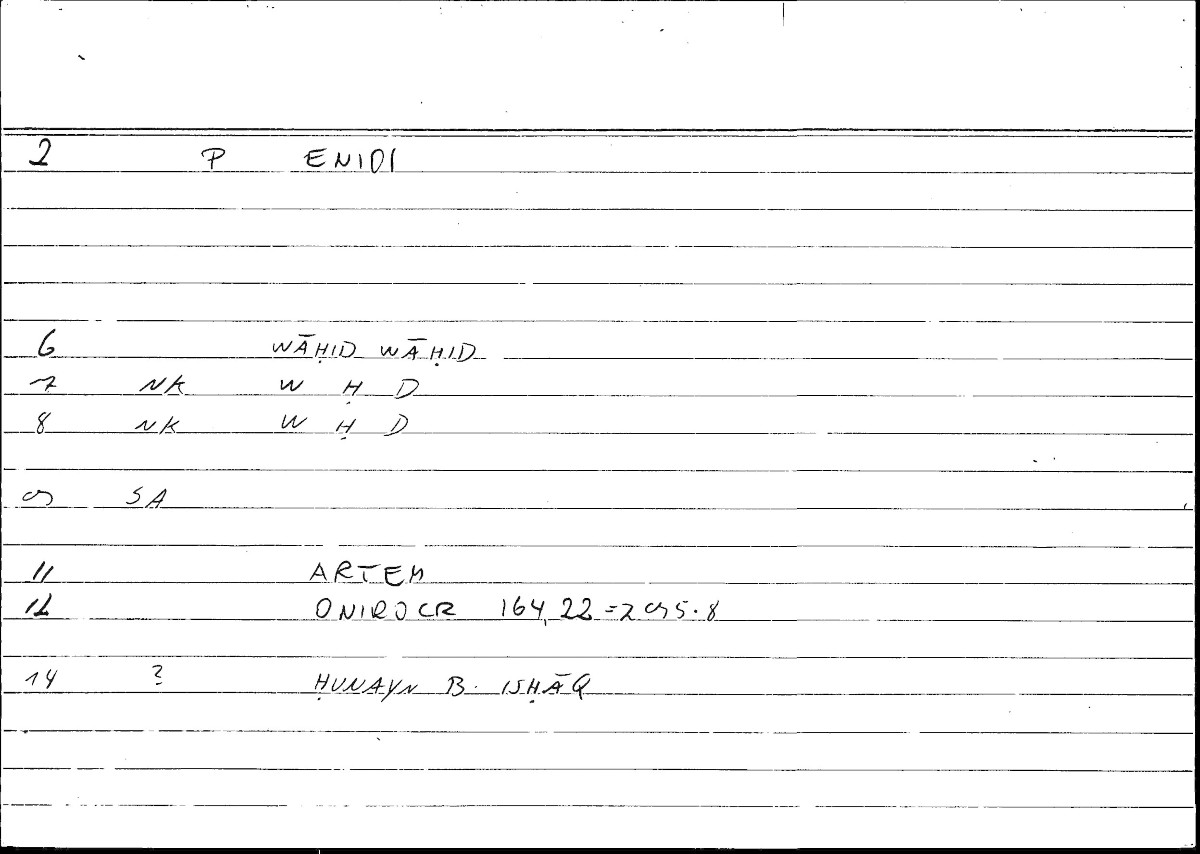 2 P ENIDI
6 WĀḤID WĀḤID
7 NK W Ḥ D
8 NK W Ḥ D
9 SA
11 ARTEM
12 ONIROCR 164,22=295.8
14 ? ḤUNAYN B. ISḤĀQ